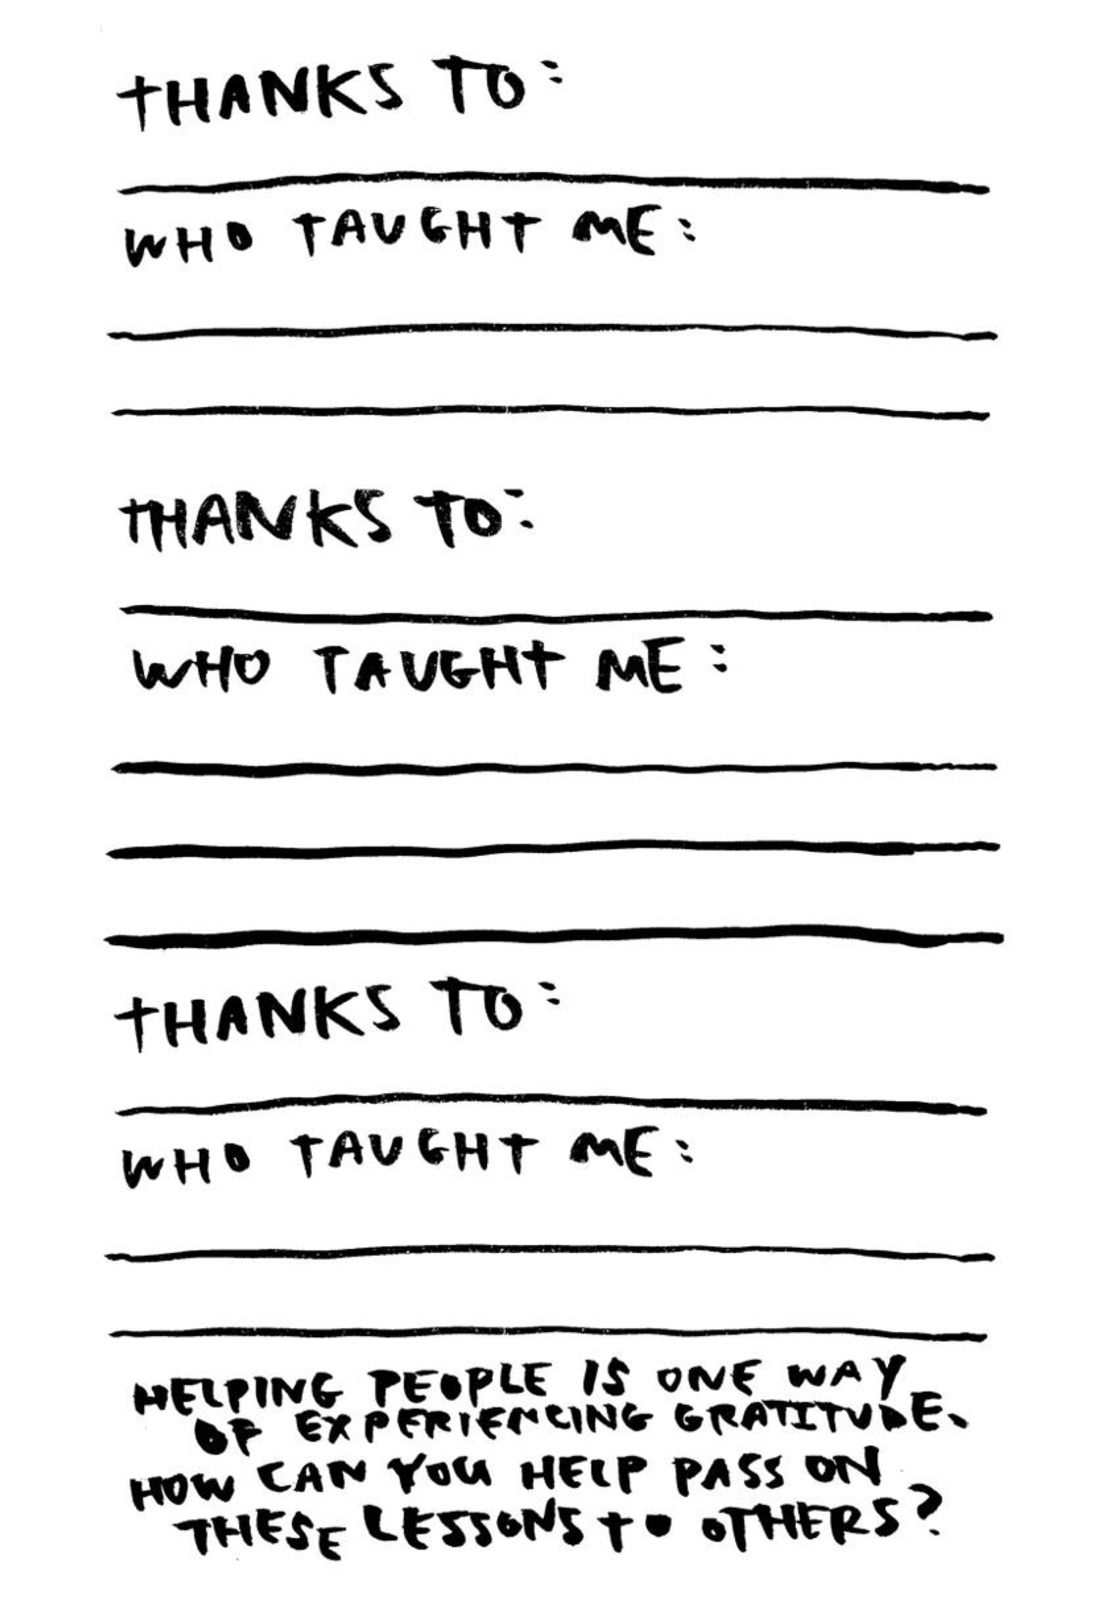 THANKS TO:
WHO TAUGHT ME:
THANKS TO:
WHO TAUGHT ME:
THANKS TO:
WHO TAUGHT ME:
HELPING PEOPLE IS ONE WAY
OF EXPERIENCING GRATITUDE.
HOW CAN YOU HELP PASS ON
THESE LESSONS TO OTHERS?